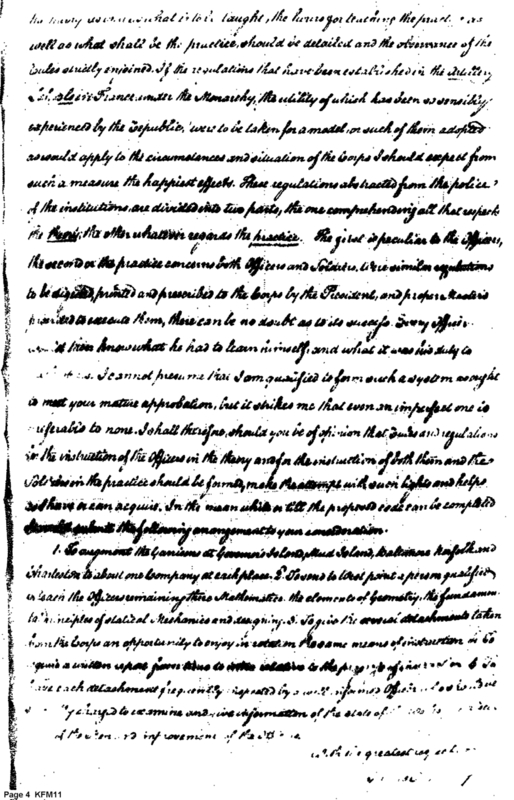 the theory as when what is to be taught, the hours for teaching the as
well as what shall be the practice, should be detailed and the observance of the
rules strictly enjoined. If the regulations that have been established in the Artillery
Schools in France under the Monarchy, the utility of which has been so sensibly
experienced by the Republic, were to be taken for a model, or such of them adopted
as would apply to the circumstances and situation of the Corps I should expect from
such a measure the happiest effects. These regulations abstracted from the police
of the institutions, are divided into two parts, the one comprehending all that respects
the theory, the other whatever regards the practice. The first is peculiar to the Officers,
the second or the practice concerns both Officers and Soldiers. Were similar regulations
to be digested, printed and prescribed to the Corps by the President, and proper Masters
provided to execute them, there can be no doubt as to its success. Every officer
would then know what he had to learn himself, and what it was his duty to
I cannot presume that I am qualified to form such a system as ought
to meet your mature approbation, but it strikes me that even an imperfect one is
preferable to none. I shall therefore, should you be of opinion that rules and regulations
for the instruction of the Officers in the theory and for the instruction of both them and the
Soldiers in the practice should be formed, make the attempt with such lights and helps
as I have or can acquire. In the mean while or till the proposed code can be completed
submit the following arrangement to your consideration.
1. To augment the Garrisons at Governor's Island, Mud Island, Baltimore Norfolk and
Charleston to about one Company at each place. 2. To send to West point a person qualified
to learn the Officers remaining there Mathematics the elements of Geometry, the fundamen
tal principles of statical Mechanics and designing. 3. To give the several detachments taken
from the Corps an opportunity to enjoy in rotation the same means of instruction
a written report from time to time relative to the progress of instruction
have each detachment frequently inspected by a well informed Officer
to examine and give information of the state of
and improvement of the
with the greatest respect
Page 4 KFM11